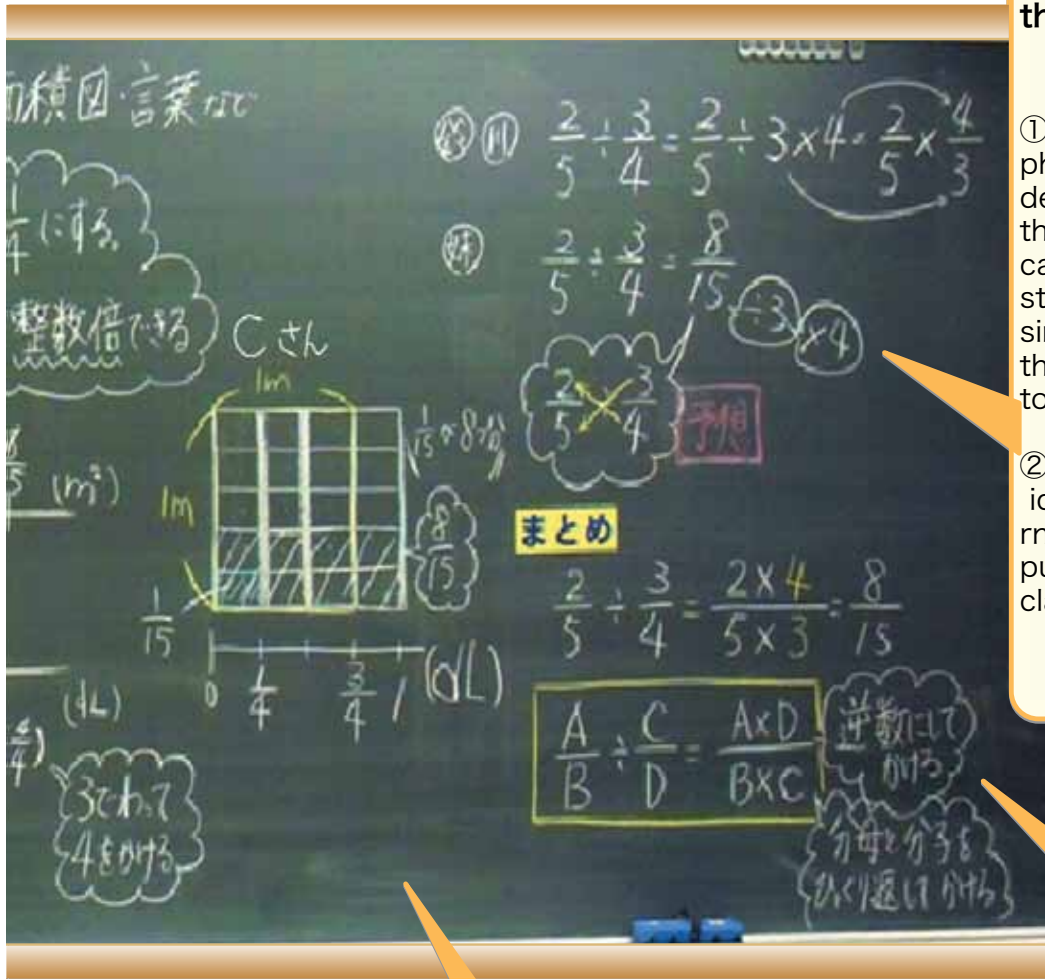 面積図・言葉など
1/4 にする。
整数倍できる
5 (m²)
(dL)
3でわって
4をかける
Cさん
1m
1m
1/15が8つ分
8/15
1/15
0 1/4 3/4 1 (dL)
2/5 ÷ 3/4 = 2/5 ÷ 3 × 4 = 2/5 × 4/3
2/5 ÷ 3/4 = 8/15
÷3 ×4
2/5 3/4
予想
まとめ
2/5 ÷ 3/4 = 2×4/5×3 = 8/15
A/B ÷ C/D = A×D/B×C
逆数にして
かける
分母と分子を
ひっくり返してかける
th
①
ph
de
th
ca
st
sin
th
to
②
id
rn
pu
cla